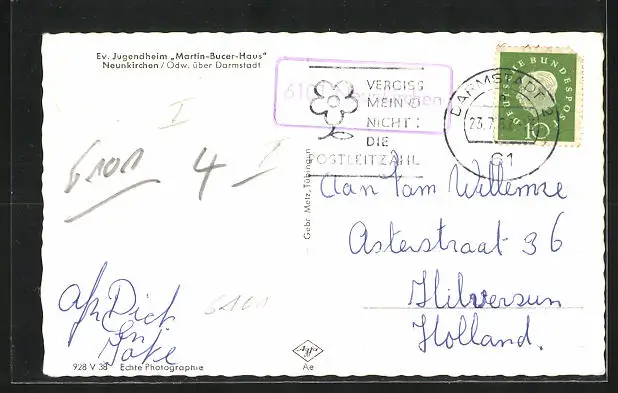 Ev. Jugendheim „Martin-Bucer-Haus"
Neunkirchen / Odw. über Darmstadt
6101 Neunkirchen
VERGISS
MEIN
NICHT:
DIE
POSTLEITZAHL
DARMSTADT 2
23.7.
61
DEUTSCHE BUNDESPOST
10
I
6101
4
I
Gebr. Metz, Tübingen
Aan Tam Willemze
Asterstraat 36
Hilversum
Holland.
Afz Dick
en
Joke
6101
928 V 38 Echte Photographie
Agfa
Ae